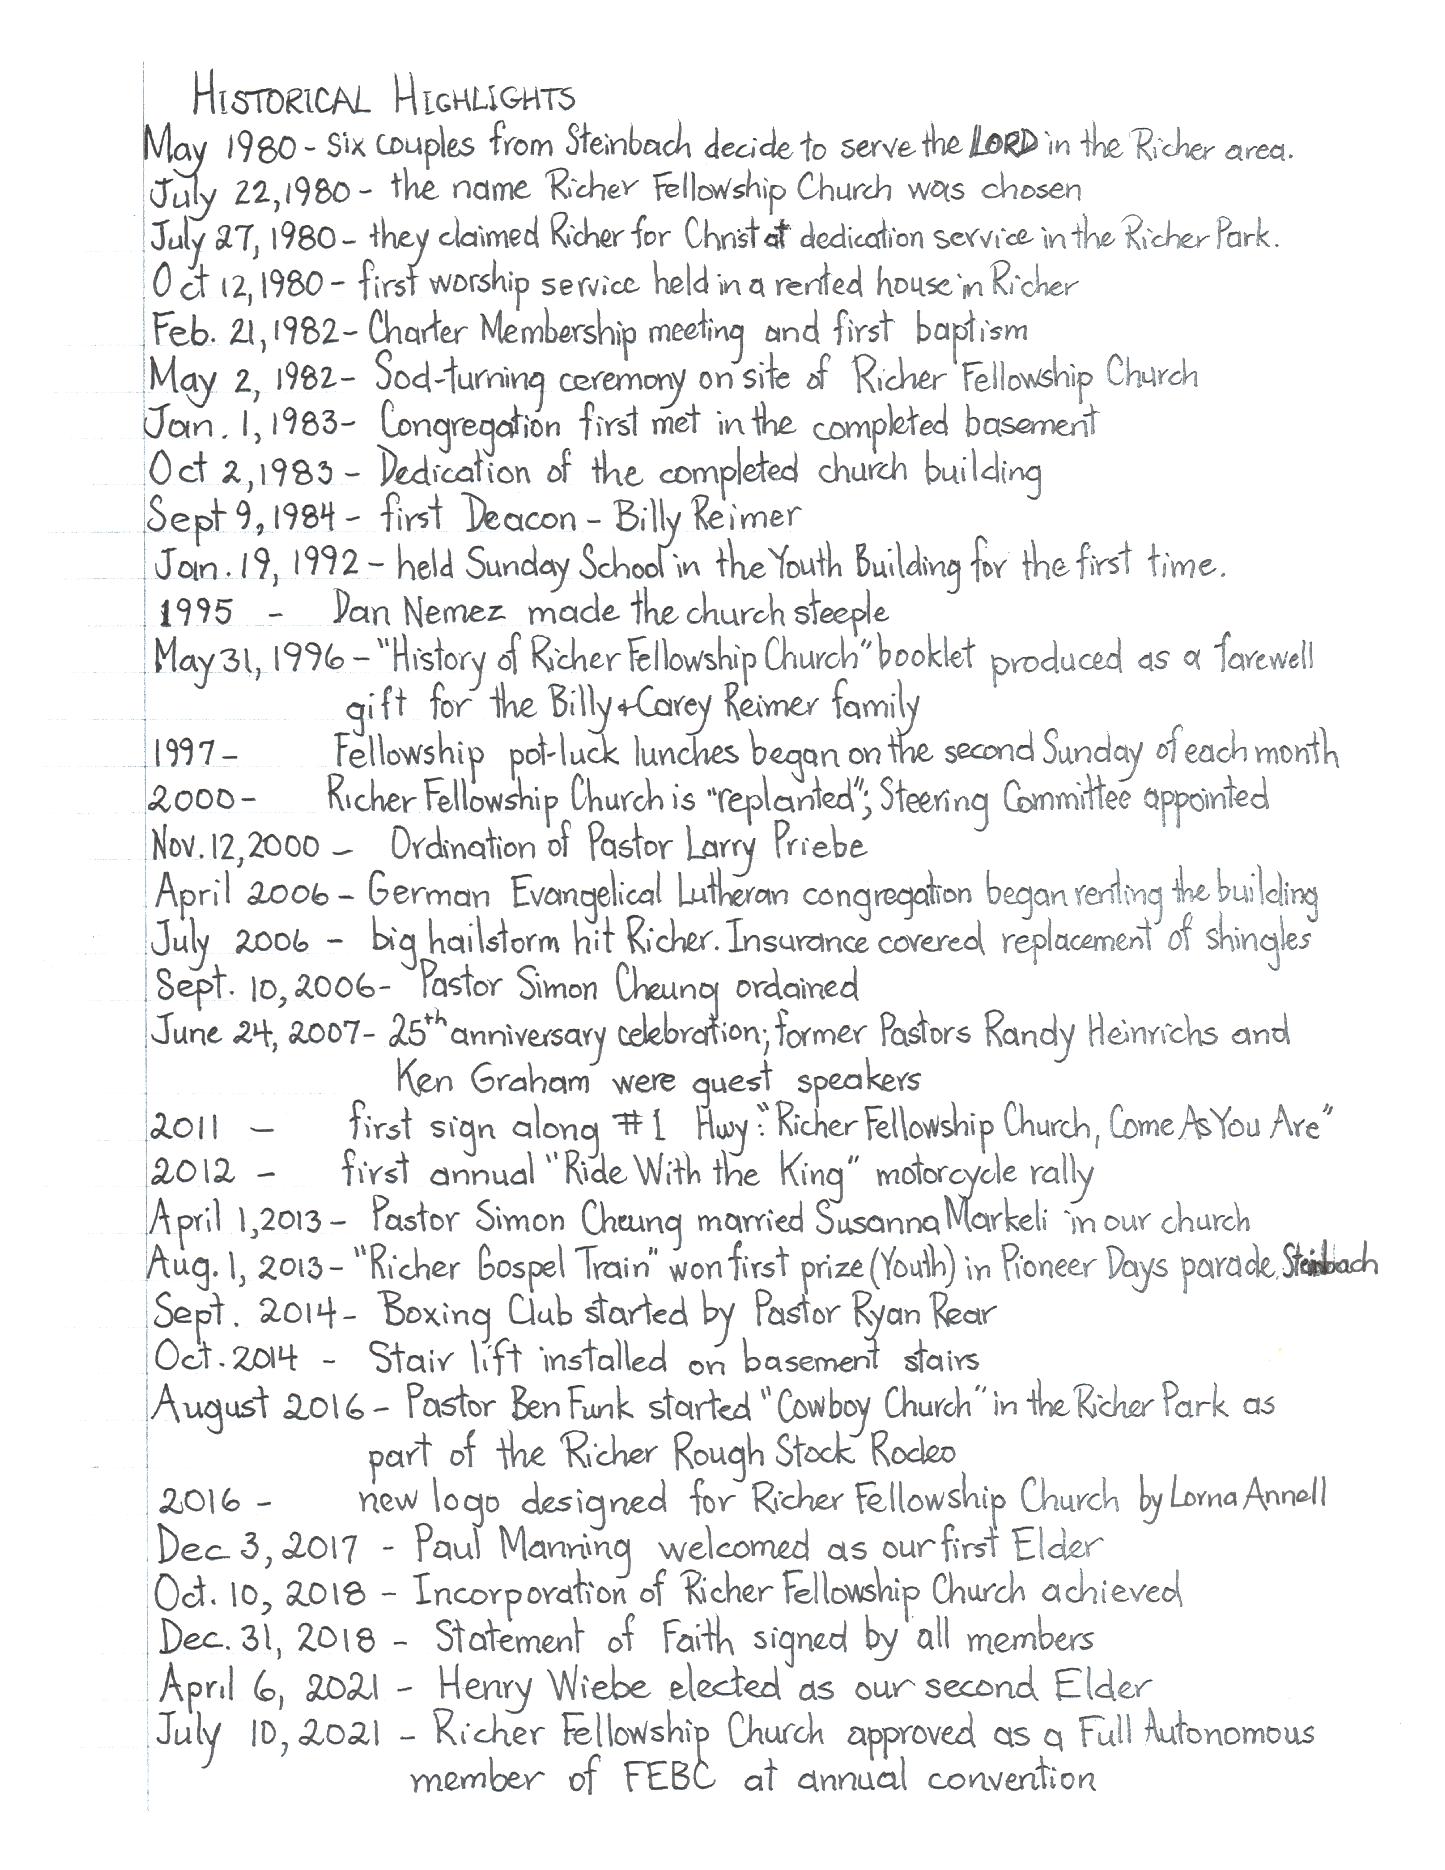 HISTORICAL HIGHLIGHTS
May 1980 - six couples from Steinbach decide to serve the LORD in the Richer area.
July 22, 1980 - the name Richer Fellowship Church was chosen
July 27, 1980 - they claimed Richer for Christ at dedication service in the Richer Park.
Oct 12, 1980 - first worship service held in a rented house in Richer
Feb. 21, 1982 - Charter Membership meeting and first baptism
May 2, 1982 - Sod-turning ceremony on site of Richer Fellowship Church
Jan. 1, 1983 - Congregation first met in the completed basement
Oct 2, 1983 - Dedication of the completed church building
Sept 9, 1984 - first Deacon - Billy Reimer
Jan. 19, 1992 - held Sunday School in the Youth Building for the first time.
1995 - Dan Nemez made the church steeple
May 31, 1996 - "History of Richer Fellowship Church" booklet produced as a farewell
gift for the Billy + Carey Reimer family
1997 - Fellowship pot-luck lunches began on the second Sunday of each month
2000 - Richer Fellowship Church is "replanted"; Steering Committee appointed
Nov. 12, 2000 - Ordination of Pastor Larry Priebe
April 2006 - German Evangelical Lutheran congregation began renting the building
July 2006 - big hailstorm hit Richer. Insurance covered replacement of shingles
Sept. 10, 2006 - Pastor Simon Cheung ordained
June 24, 2007 - 25th anniversary celebration; former Pastors Randy Heinrichs and
Ken Graham were guest speakers
2011 - first sign along #1 Hwy: "Richer Fellowship Church, Come As You Are"
2012 - first annual "Ride With the King" motorcycle rally
April 1, 2013 - Pastor Simon Cheung married Susanna Markeli in our church
Aug. 1, 2013 - "Richer Gospel Train" won first prize (Youth) in Pioneer Days parade, Steinbach
Sept. 2014 - Boxing Club started by Pastor Ryan Rear
Oct. 2014 - Stair lift installed on basement stairs
August 2016 - Pastor Ben Funk started "Cowboy Church" in the Richer Park as
part of the Richer Rough Stock Rodeo
2016 - new logo designed for Richer Fellowship Church by Lorna Annell
Dec 3, 2017 - Paul Manning welcomed as our first Elder
Oct. 10, 2018 - Incorporation of Richer Fellowship Church achieved
Dec. 31, 2018 - Statement of Faith signed by all members
April 6, 2021 - Henry Wiebe elected as our second Elder
July 10, 2021 - Richer Fellowship Church approved as a Full Autonomous
member of FEBC at annual convention